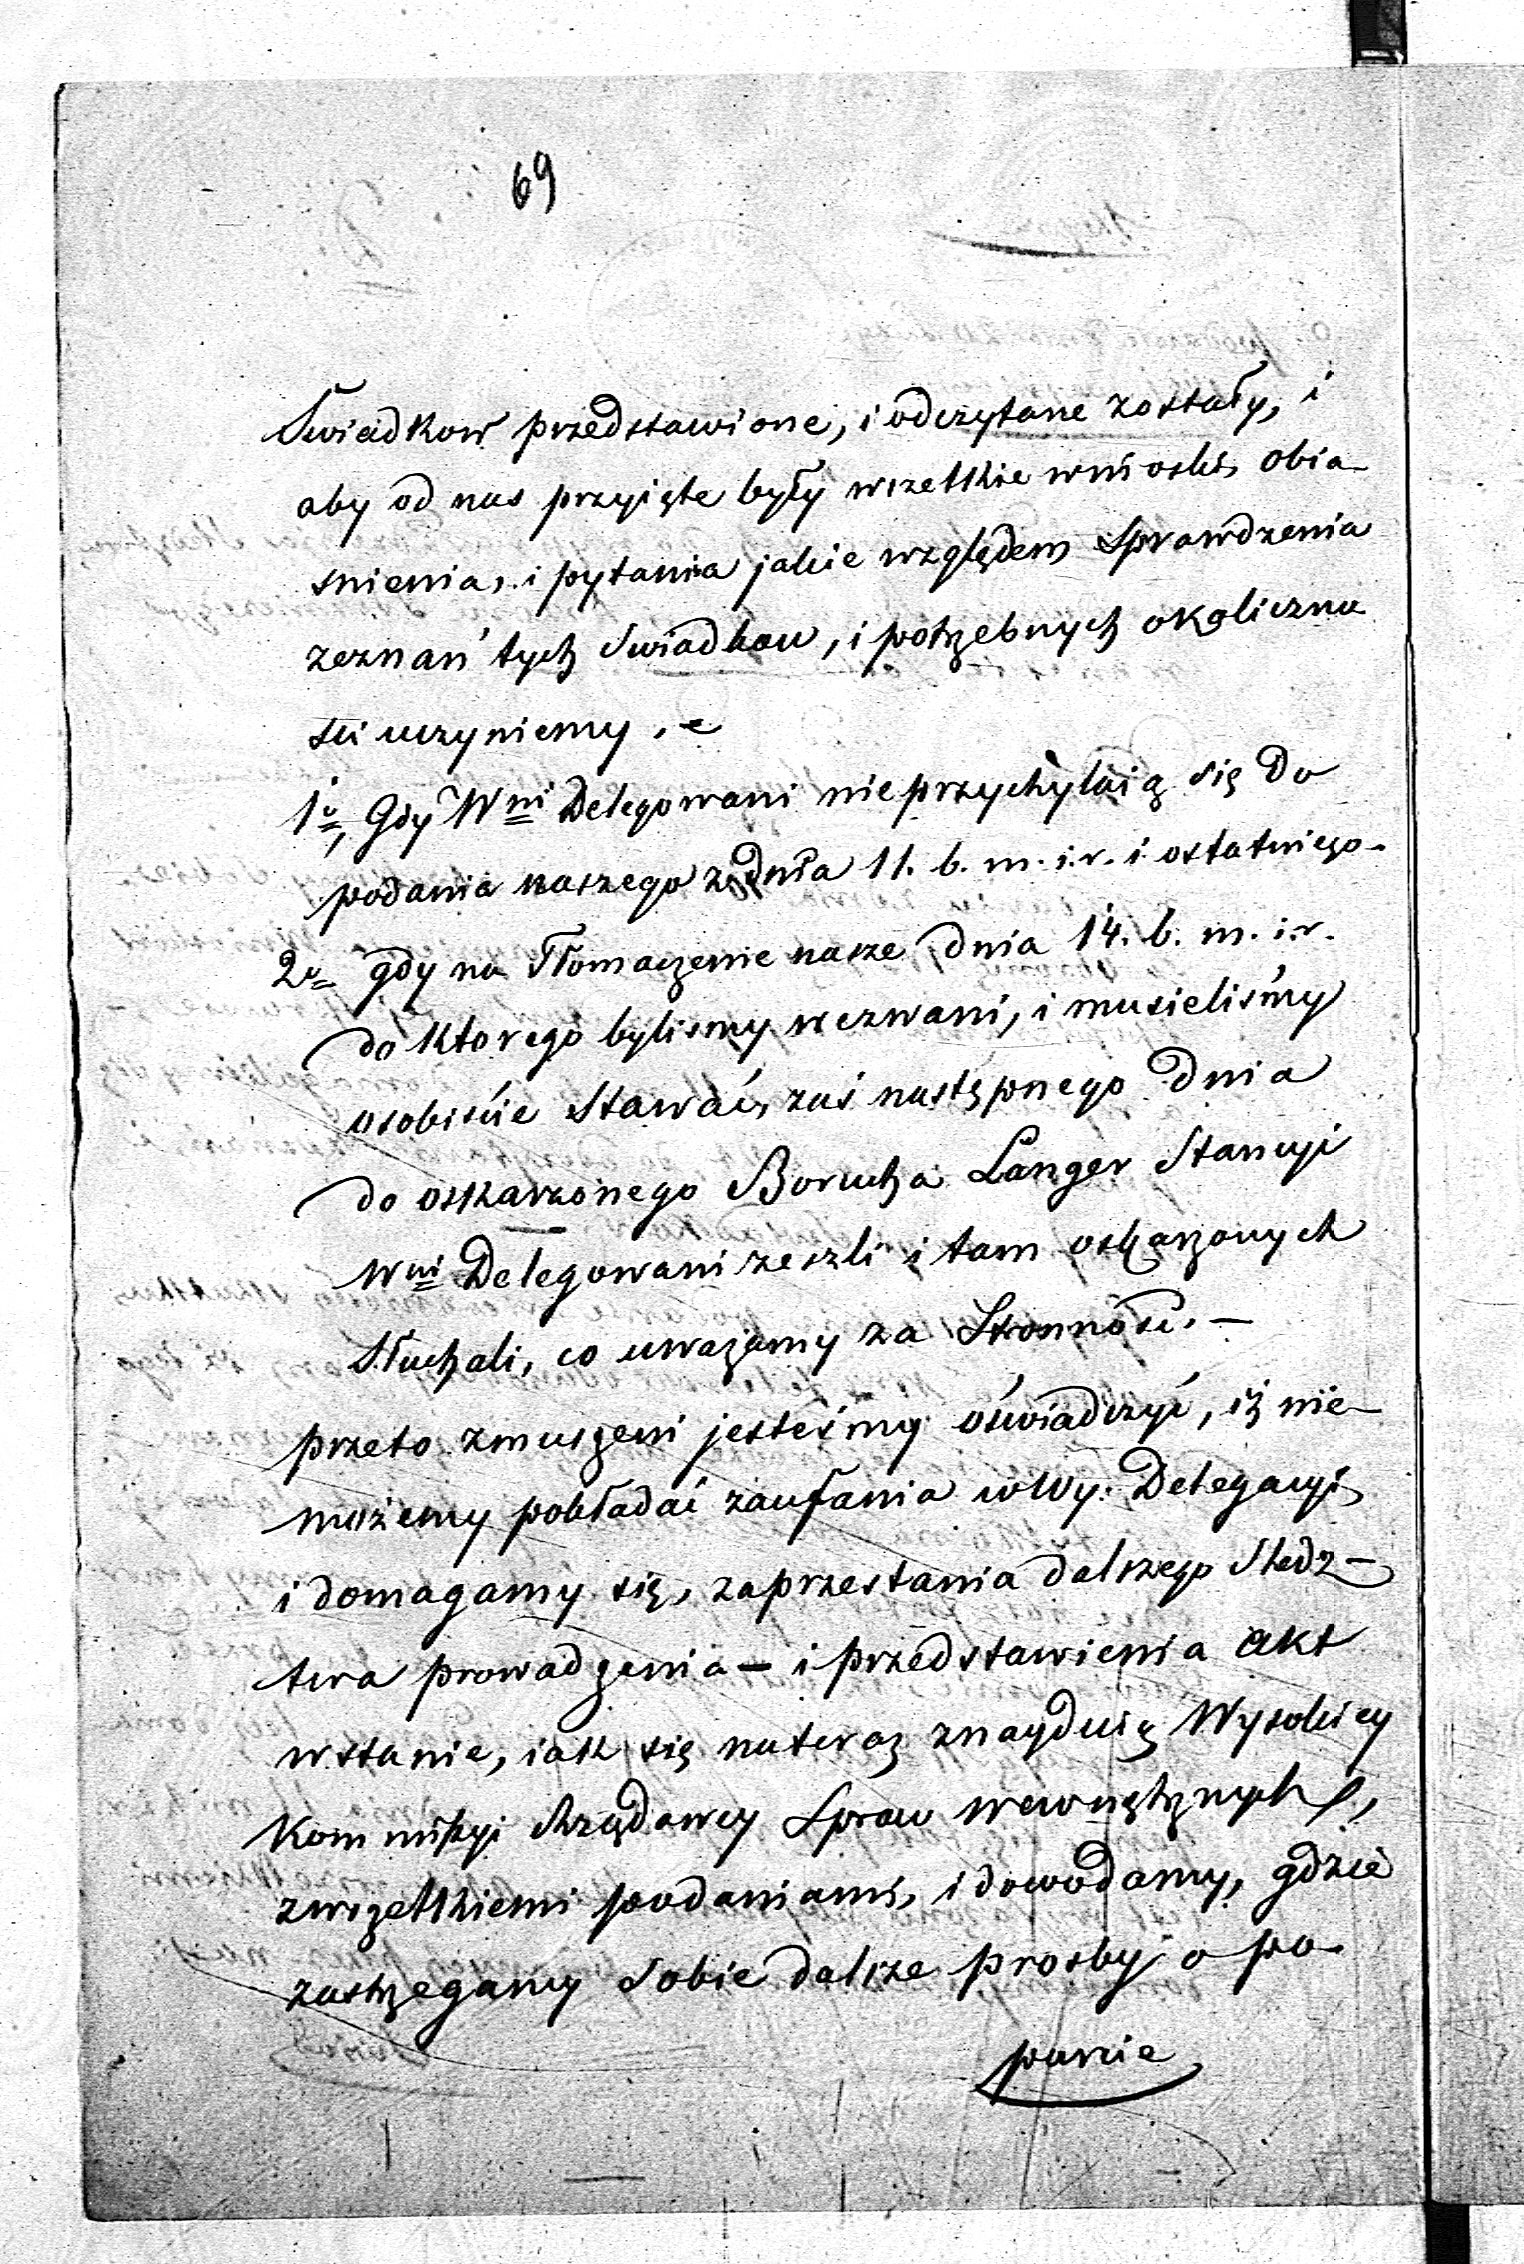 69
Swiadkow przedstawione, i odczytane zostały, i
aby od nas przyięte były wszelkie wnioski, obia-
snienia, i pytania jakie względem Sprawdzenia
zeznań tych Swiadkow, i potrzebnych okoliczno
sci uczyniemy. –
1º, Gdy Wni Delegowani nieprzychylaią się do
podania naszego z dnia 11. b. m. i. r. i ostatniego.
2º gdy na Tłomaczenie nasze dnia 14. b. m. i. r.
do ktorego bylismy wezwani, i musieliśmy
osobiście Stawać, zaś następnego dnia
do oskarzonego Borucha Langer Stancyi
Wni Delegowani zeszli i tam oskarzonych
Słuchali, co uwazamy za Stronność. –
przeto zmuszeni jesteśmy oświadczyć, iż nie-
możemy pokładać zaufania w Wy. Delegacyi,
i domagamy się, zaprzestania dalszego Sledz-
twa prowadzenia – i przedstawienia akt
w stanie, iak się nateraz znayduią Wysokiey
Kommissyi Rządowey Spraw wewnętrznych,
z wszelkiemi podaniami, i dowodamy, gdzie
zastrzegamy Sobie dalsze prosby o po-
parcie